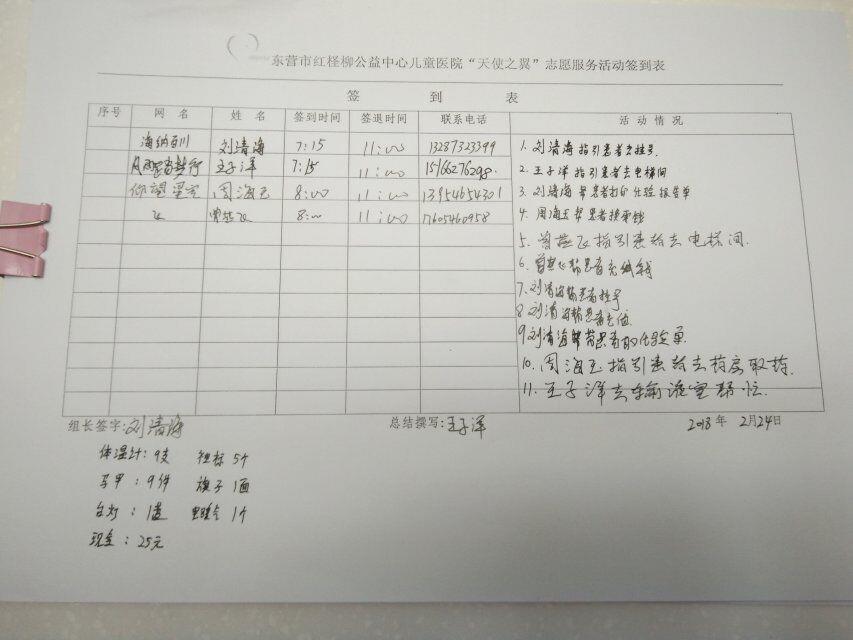 东营市红柽柳公益中心儿童医院“天使之翼”志愿服务活动签到表
签 到 表
序号 网 名 姓 名 签到时间 签退时间 联系电话 活 动 情 况
海纳百川 刘清海 7:15 11:00 13287323399
王子洋 7:15 11:00 15166276298
仰望星空 周海玉 8:00 11:00 13954654301
飞 曾燕飞 8:00 11:00 17605460958
1. 刘清海指引患者去挂号
2. 王子洋指引患者去电梯间
3. 刘清海帮患者打印化验报告单
4. 周海玉帮患者换零钱
5. 曾燕飞指引患者去电梯间.
6. 曾燕飞帮患者充钱
7. 刘清海帮患者挂号
8 刘清海帮患者
9 刘清海帮患者取化验单.
10. 周海玉指引患者去药房取药.
11. 王子洋去输液室帮忙
组长签字:刘清海 总结撰写:王子洋 2018年 2月24日
体温计:9支 5个
马甲:9件 旗子1面
台灯:1盏 1个
现金:25元